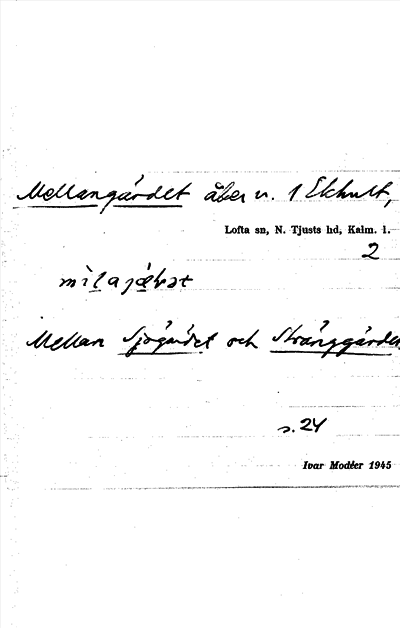 Mellangärdet åker n. 1 Ekhult,
Lofta sn, N. Tjusts hd, Kalm. l.
2
Mellan Sjögärdet och Stränggärdet
s. 24
Ivar Modéer 1945